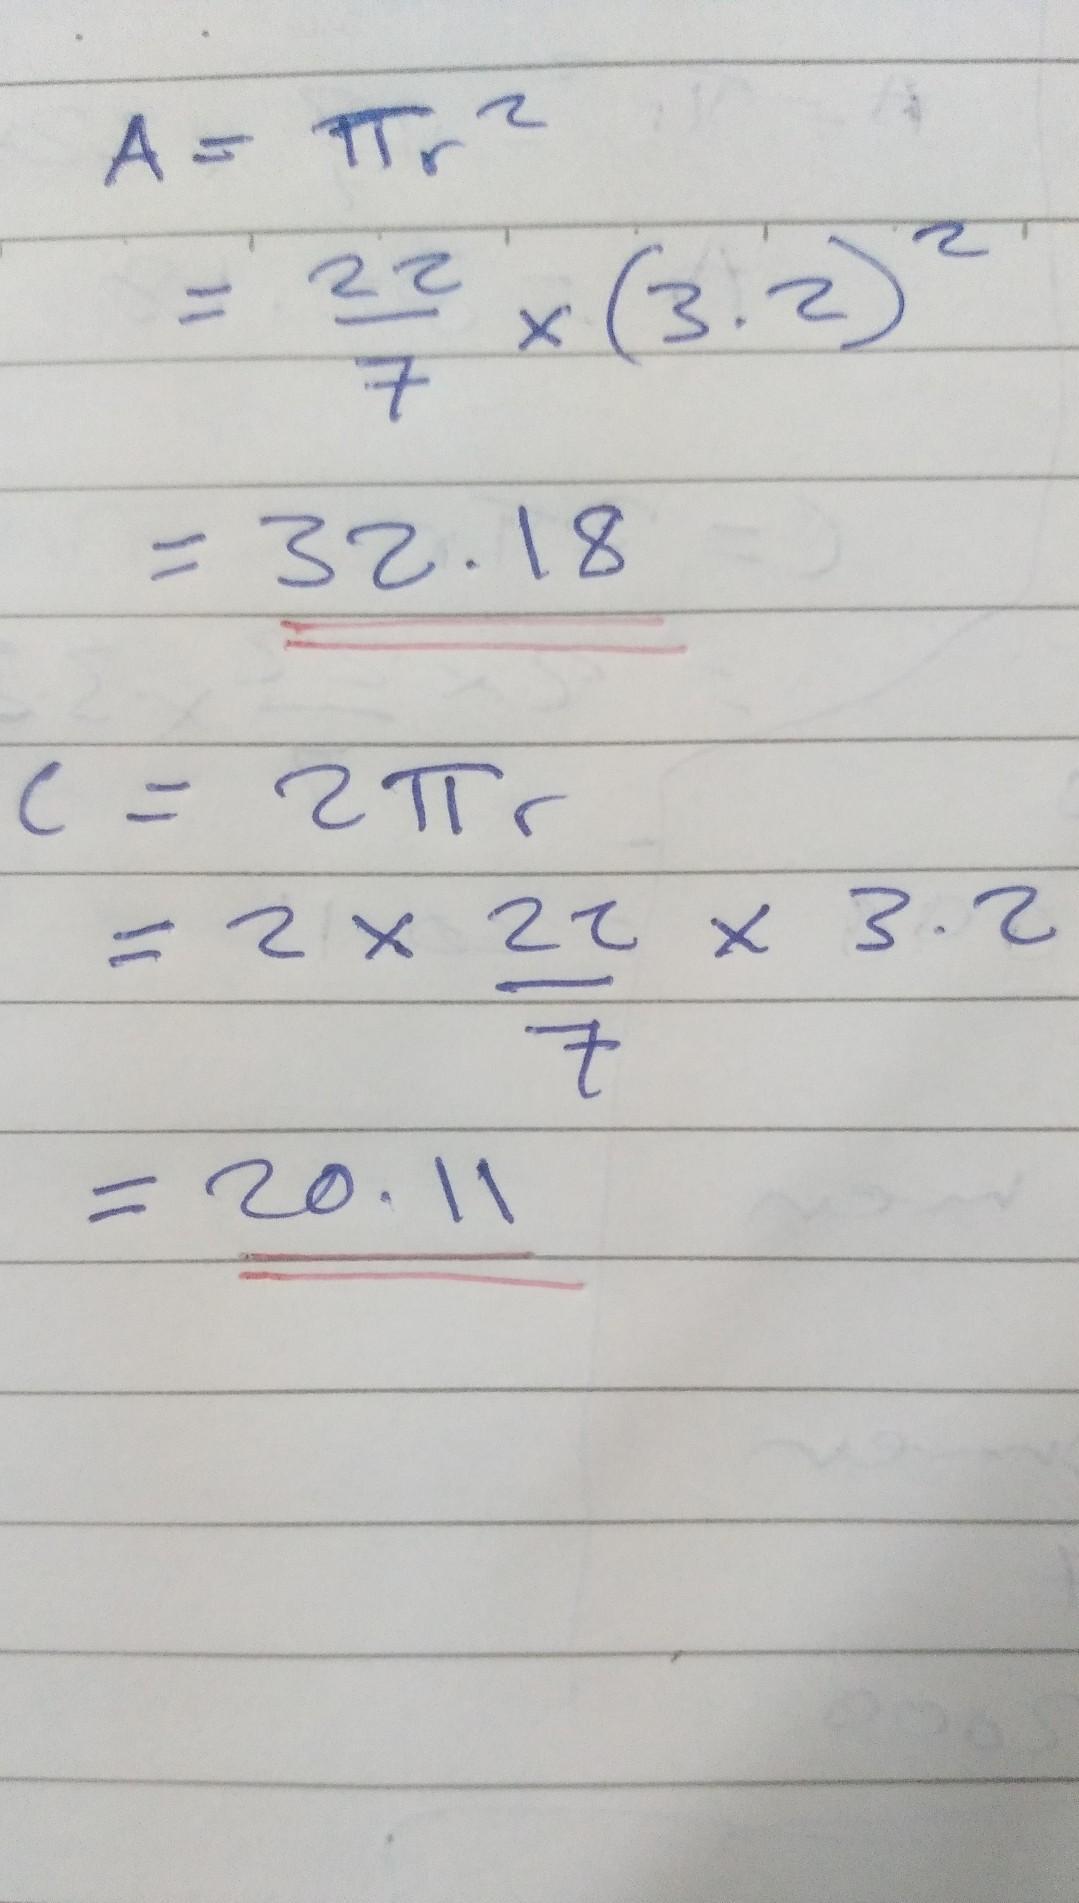 A = πr²
= 22/7 × (3.2)²
= 32.18
C = 2πr
= 2 × 22/7 × 3.2
= 20.11